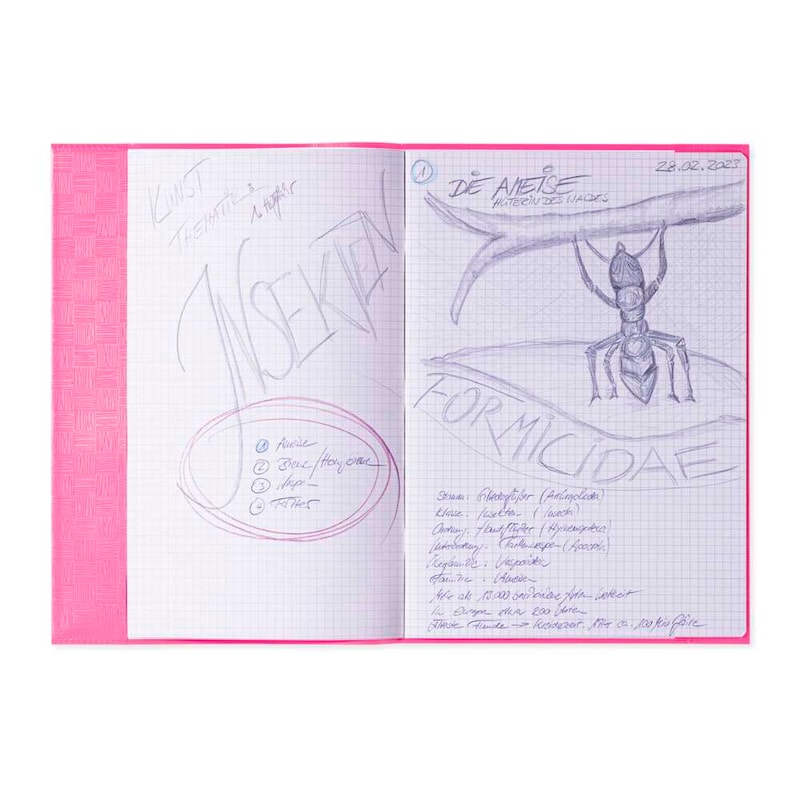 KUNST
THEMA
INSEKTEN
1 Ameise
2 Biene/Honigbiene
3 Wespe
4 Falter
1
28.02.2023
DIE AMEISE
HÜTERIN DES WALDES
FORMICIDAE
Stamm: Gliederfüßer (Arthropoda)
Klasse: Insekten (Insecta)
Ordnung: Hautflügler (Hymenoptera)
Unterordnung: Taillenwespen (Apocrita)
Überfamilie: Vespoidea
Familie: Ameisen
Mehr als 13.000 Arten
In Europa etwa 200 Arten
Älteste Funde → Kreidezeit. Mit ca. 100 Mio